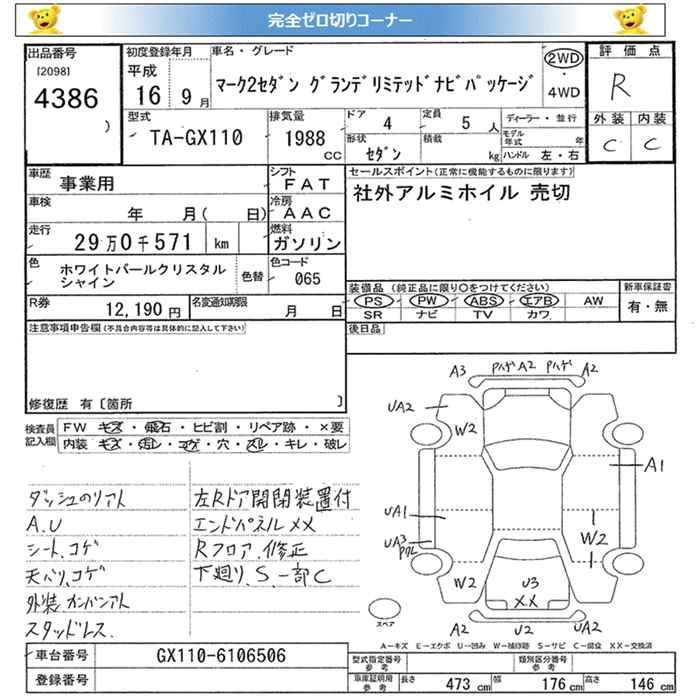 完全ゼロ切りコーナー
出品番号
[2098]
4386
)
初度登録年月
平成
16 9月
車名・グレード
マーク2セダン グランデリミテッドナビパッケージ
2WD
・
4WD
評価点
R
外装 内装
C C
型式
TA-GX110
排気量
1988
CC
ドア 4
定員 5 人
形状 セダン
積載 kg
ディーラー・並行
モデル年式 年
ハンドル 左・右
車歴 事業用
シフト FAT
車検 年 月( 日)
冷房 AAC
走行 29万0千571 km
燃料 ガソリン
色 ホワイトパールクリスタル
シャイン
色替
色コード 065
R券 12,190 円
名変通知期限 月 日
セールスポイント(正常に機能するものに限ります)
社外アルミホイル 売切
装備品 (純正品に限り○をつけてください)
PS PW ABS エアB AW
SR ナビ TV カワ
新車保証書
有・無
後日品
注意事項申告欄(不具合内容等は具体的に記入して下さい)
修復歴 有〔箇所 〕
検査員
記入欄
FW キズ・飛石・ヒビ割・リペア跡・×要
内装 キズ・汚レ・コゲ・穴・スレ・キレ・破レ
ダッシュのリアト
A.U
シート、コゲ
天バリ、コゲ
外装 カンバンアト
スタッドレス.
左Rドア開閉装置付
エンドパネルXX
Rフロア、修正
下廻り、S、一部C
A3 Pハゲ A2 Pハゲ A2
UA2
W2
A1
UA1
UA3
W2
W2
U3
XX
A2 U2 UA2
スペア
A-キズ E-エクボ U-凹み W-補修跡 S-サビ C-腐食 XX-交換済
車台番号 GX110-6106506
登録番号
型式指定番号
参考
類別区分番号
参考
車庫証明用
参考
長さ 473 cm
幅 176 cm
高さ 146 cm